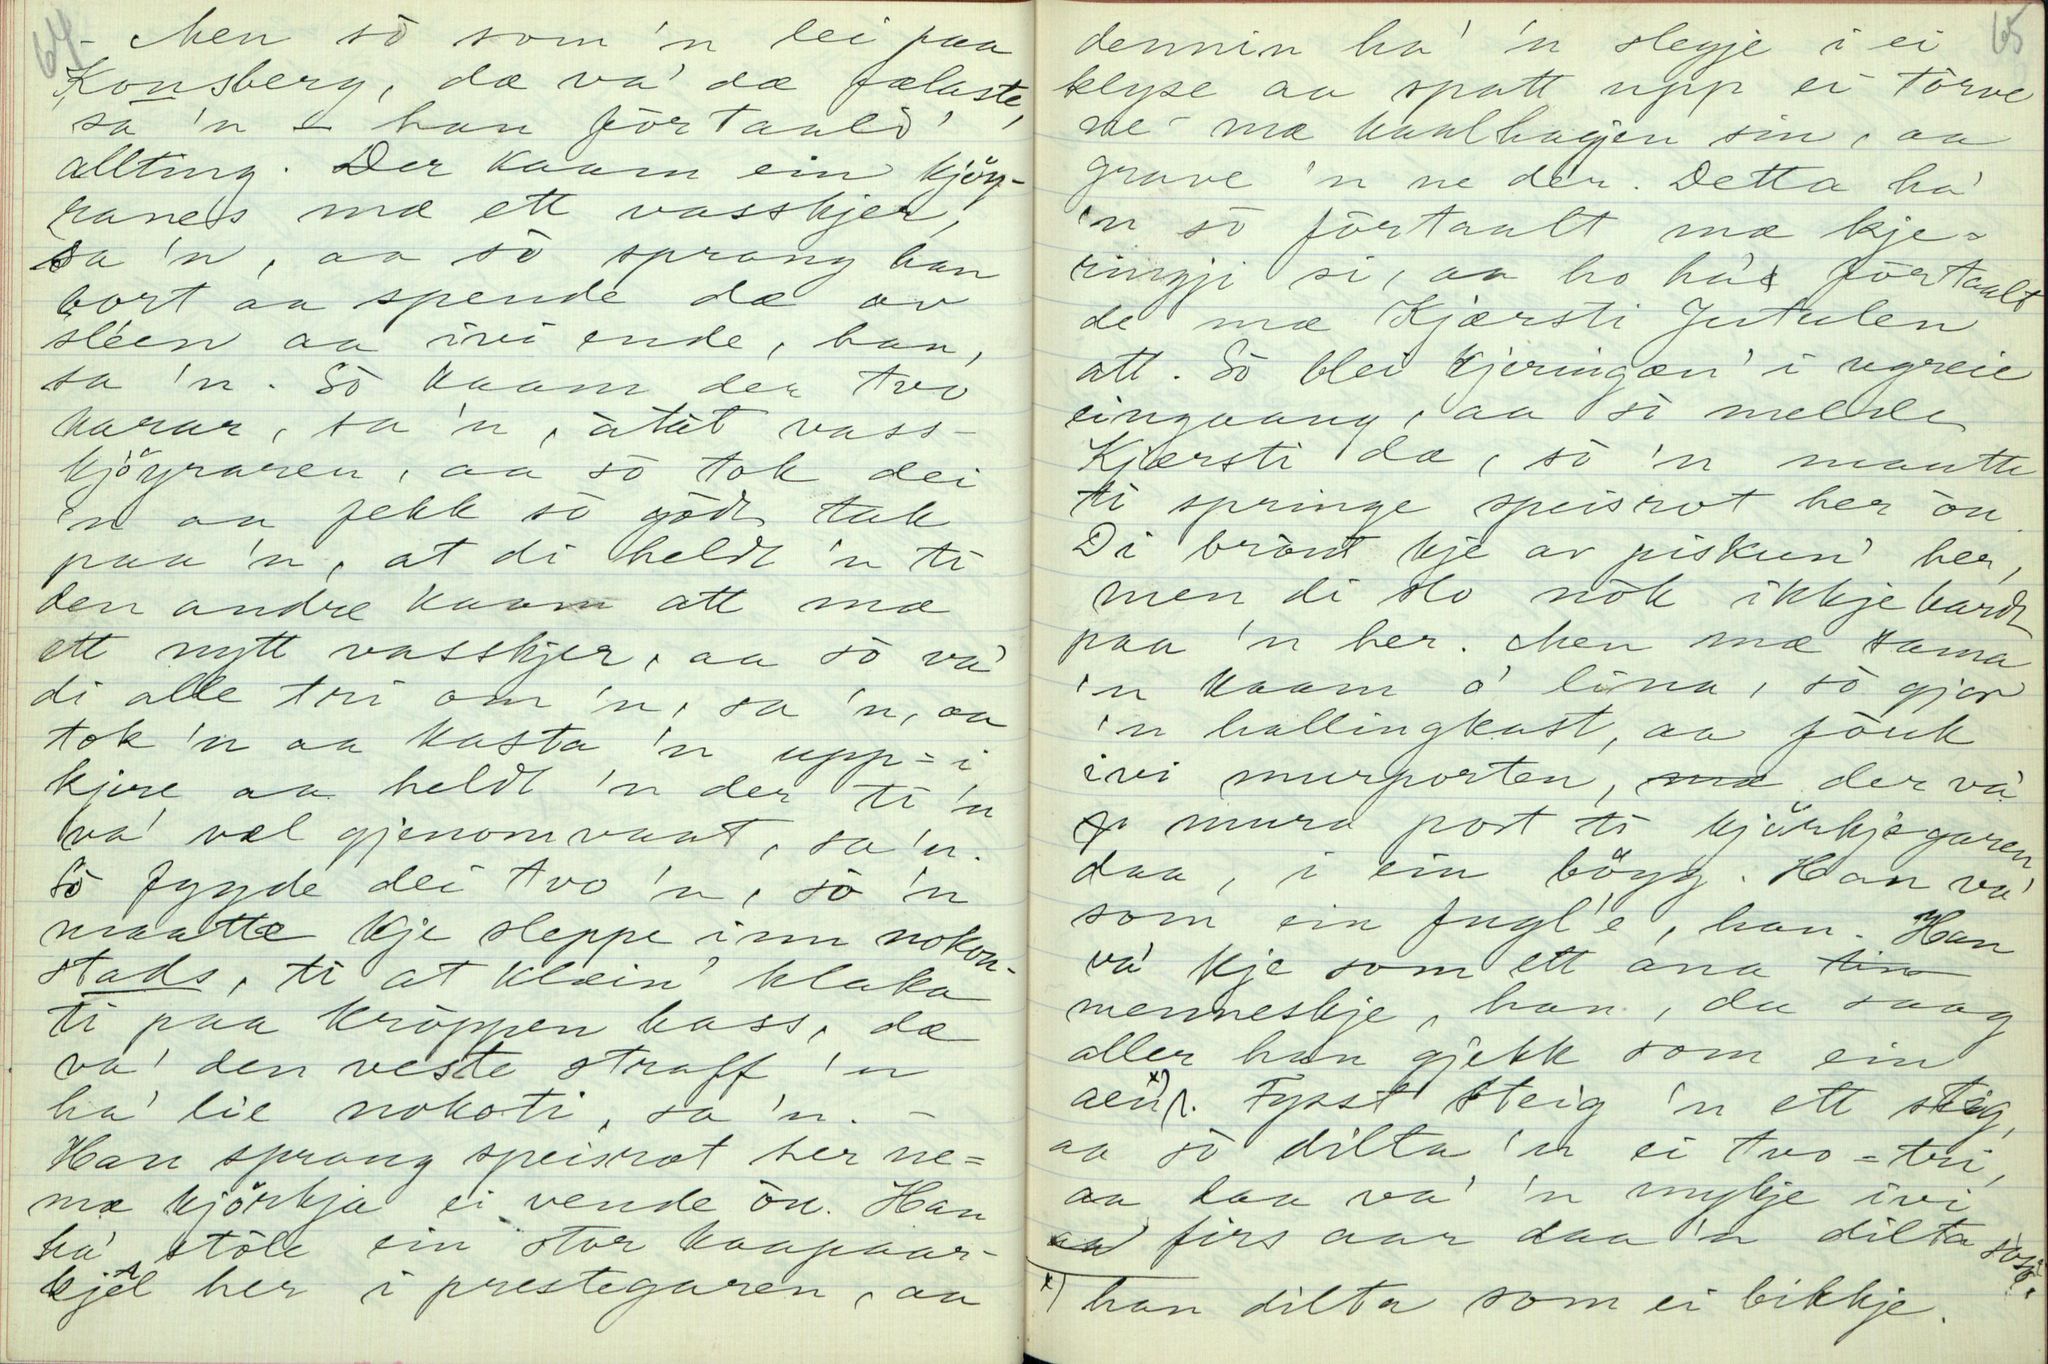 64
- Men sò som 'n lei paa
Konsberg, dæ va' dæ fælaste,
sa 'n - han förtaalò'
allting. Der kaam ein kjöy-
ranes mæ ett vasskjer,
sa 'n, aa sò sprang han
bort aa spende dæ av
sléen aa ivi ende, han,
sa 'n. Sò kaam der tvo
karar, sa 'n, àtàt vass-
kjöyraren, aa sò tok dei
'n aa fekk sò gödt tak
paa 'n, at di heldt 'n ti
den andre kaam att mæ
ett nytt vasskjer, aa sò va'
di alle tri om 'n, sa 'n, aa
tok 'n aa kasta 'n upp-i
kjere aa heldt 'n der ti 'n
va' væl gjenomvaat, sa 'n.
Sò fygde dei tvo 'n, sò 'n
maatte kje sleppe inn nokon-
stads, ti at klæin' klaka
ti paa kròppen hass, dæ
va' den veste straff 'n
ha' lie nokoti, sa 'n. -
Han sprang speisrot her ne-
mæ kjörkja ei vende òu. Han
ha' stòle ein stor kaapaar-
kjel her i prestegaren, aa
65
dennin ha' 'n slegje i ei
klyse aa spatt upp ei törve
ne- mæ kaalhagjen sin, aa
grave 'n ne der. Detta ha'
'n sò förtaalt mæ kje-
ringji si, aa ho ha' förtaalt
de mæ Kjærsti Jutulen
att. Sò blei kjeringæn' i ugreie
eingaang, aa sò melde
Kjærsti dæ, sò 'n maatte
ti springe speisrot her òu.
Di brònt kje av piskun' her,
men di slo nòk ikkje hardt
paa 'n her. Men mæ sama
'n kaam o' lina, sò gjor
'n hallingkast, aa föuk
ivi murporten, mæ der va'
mura port ti kjörkjegaren
daa, i ein böyg. Han va'
som ein fugl'e, han. Han
va' kje som ett ana
menneskje, han, du saag
aller han gjekk som ein
aen x). Fysst steig 'n ett steg,
aa sò dilta 'n ei tvo-tri,
aa daa va' 'n mykje ivi
aa firs aar daa 'n dilta soso.
x) han dilta som ei bikkje.